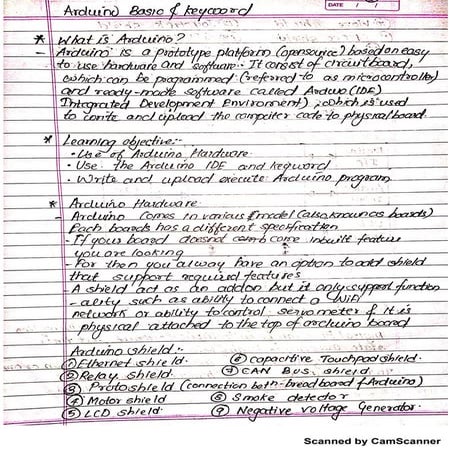 Arduino Basic & keyword
DATE / /
* What is Arduino?
- Arduino is a prototype platform (opensource) based on easy
to use hardware and software. It consist of circuit board,
which can be programmed (referred to as microcontroller)
and ready-made software called Arduino (IDE)
Integrated Development Environment), which is used
to write and upload the computer code to physical board.
* Learning objective:-
- Use of Arduino Hardware
- Use the Arduino IDE and keyword
- Write and upload execute Arduino program
* Arduino Hardware
- Arduino comes in various model (also known as boards)
Each boards has a different specification
- If your board doesnot come inbuilt feature
you are looking
- For then you alway have an option to add shield
that support required features
- A shield act as an addon but it only support function
- ality such as ability to connect a WiFi
network or ability to control servometer if it is
physical attached to the top of arduino board
Arduino shield:-
① Ethernet shield. ⑥ capacitive Touchpad shield.
② Relay shield. ⑦ CAN BUS shield
③ Protoshield (connection betn breadboard & Arduino)
④ Motor shield ⑧ Smoke detector
⑤ LCD shield ⑨ Negative Voltage Generator.
Scanned by CamScanner